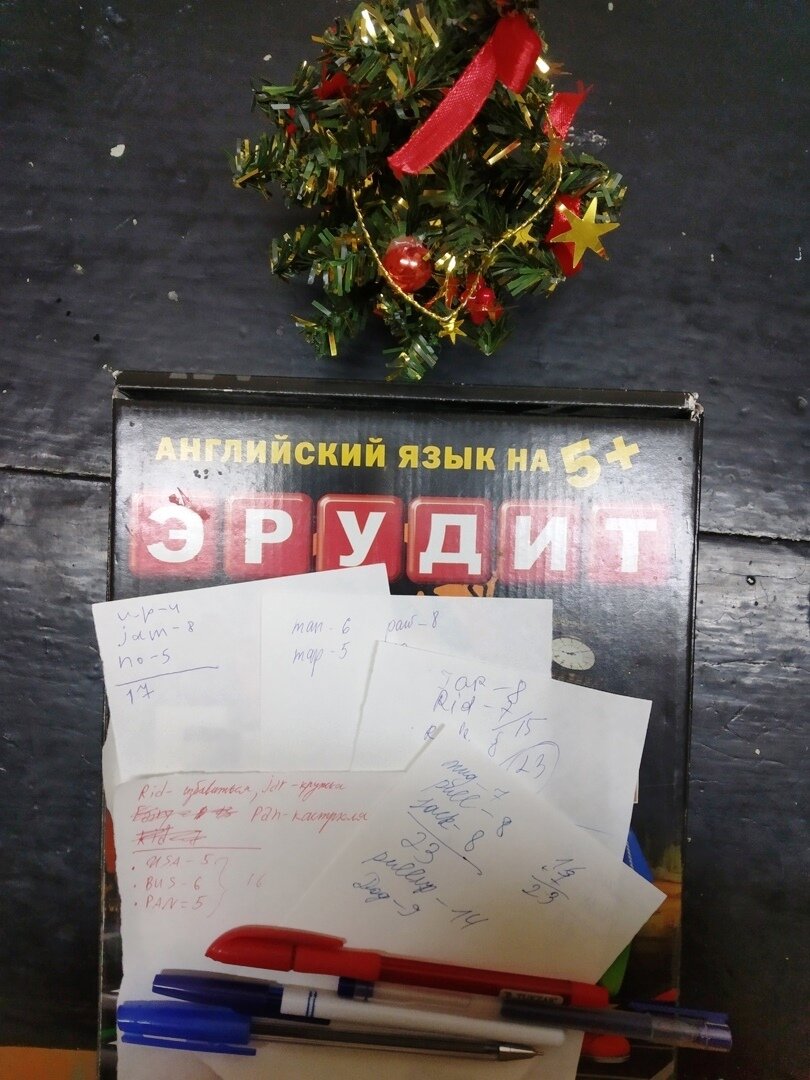 АНГЛИЙСКИЙ ЯЗЫК НА 5+
ЭРУДИТ
jam - 8
no - 5
17
man - 6 paw - 8
map - 5
Jar - 8
Rid - 7/15
8 23
mug - 7
pull - 8
sack - 8
23
pullup - 14
Dog - 9
19
23
Rid - избиваться, jar - кружка
Pan - кастрюля
. USA - 5
. BUS - 6 16
. PAN = 5